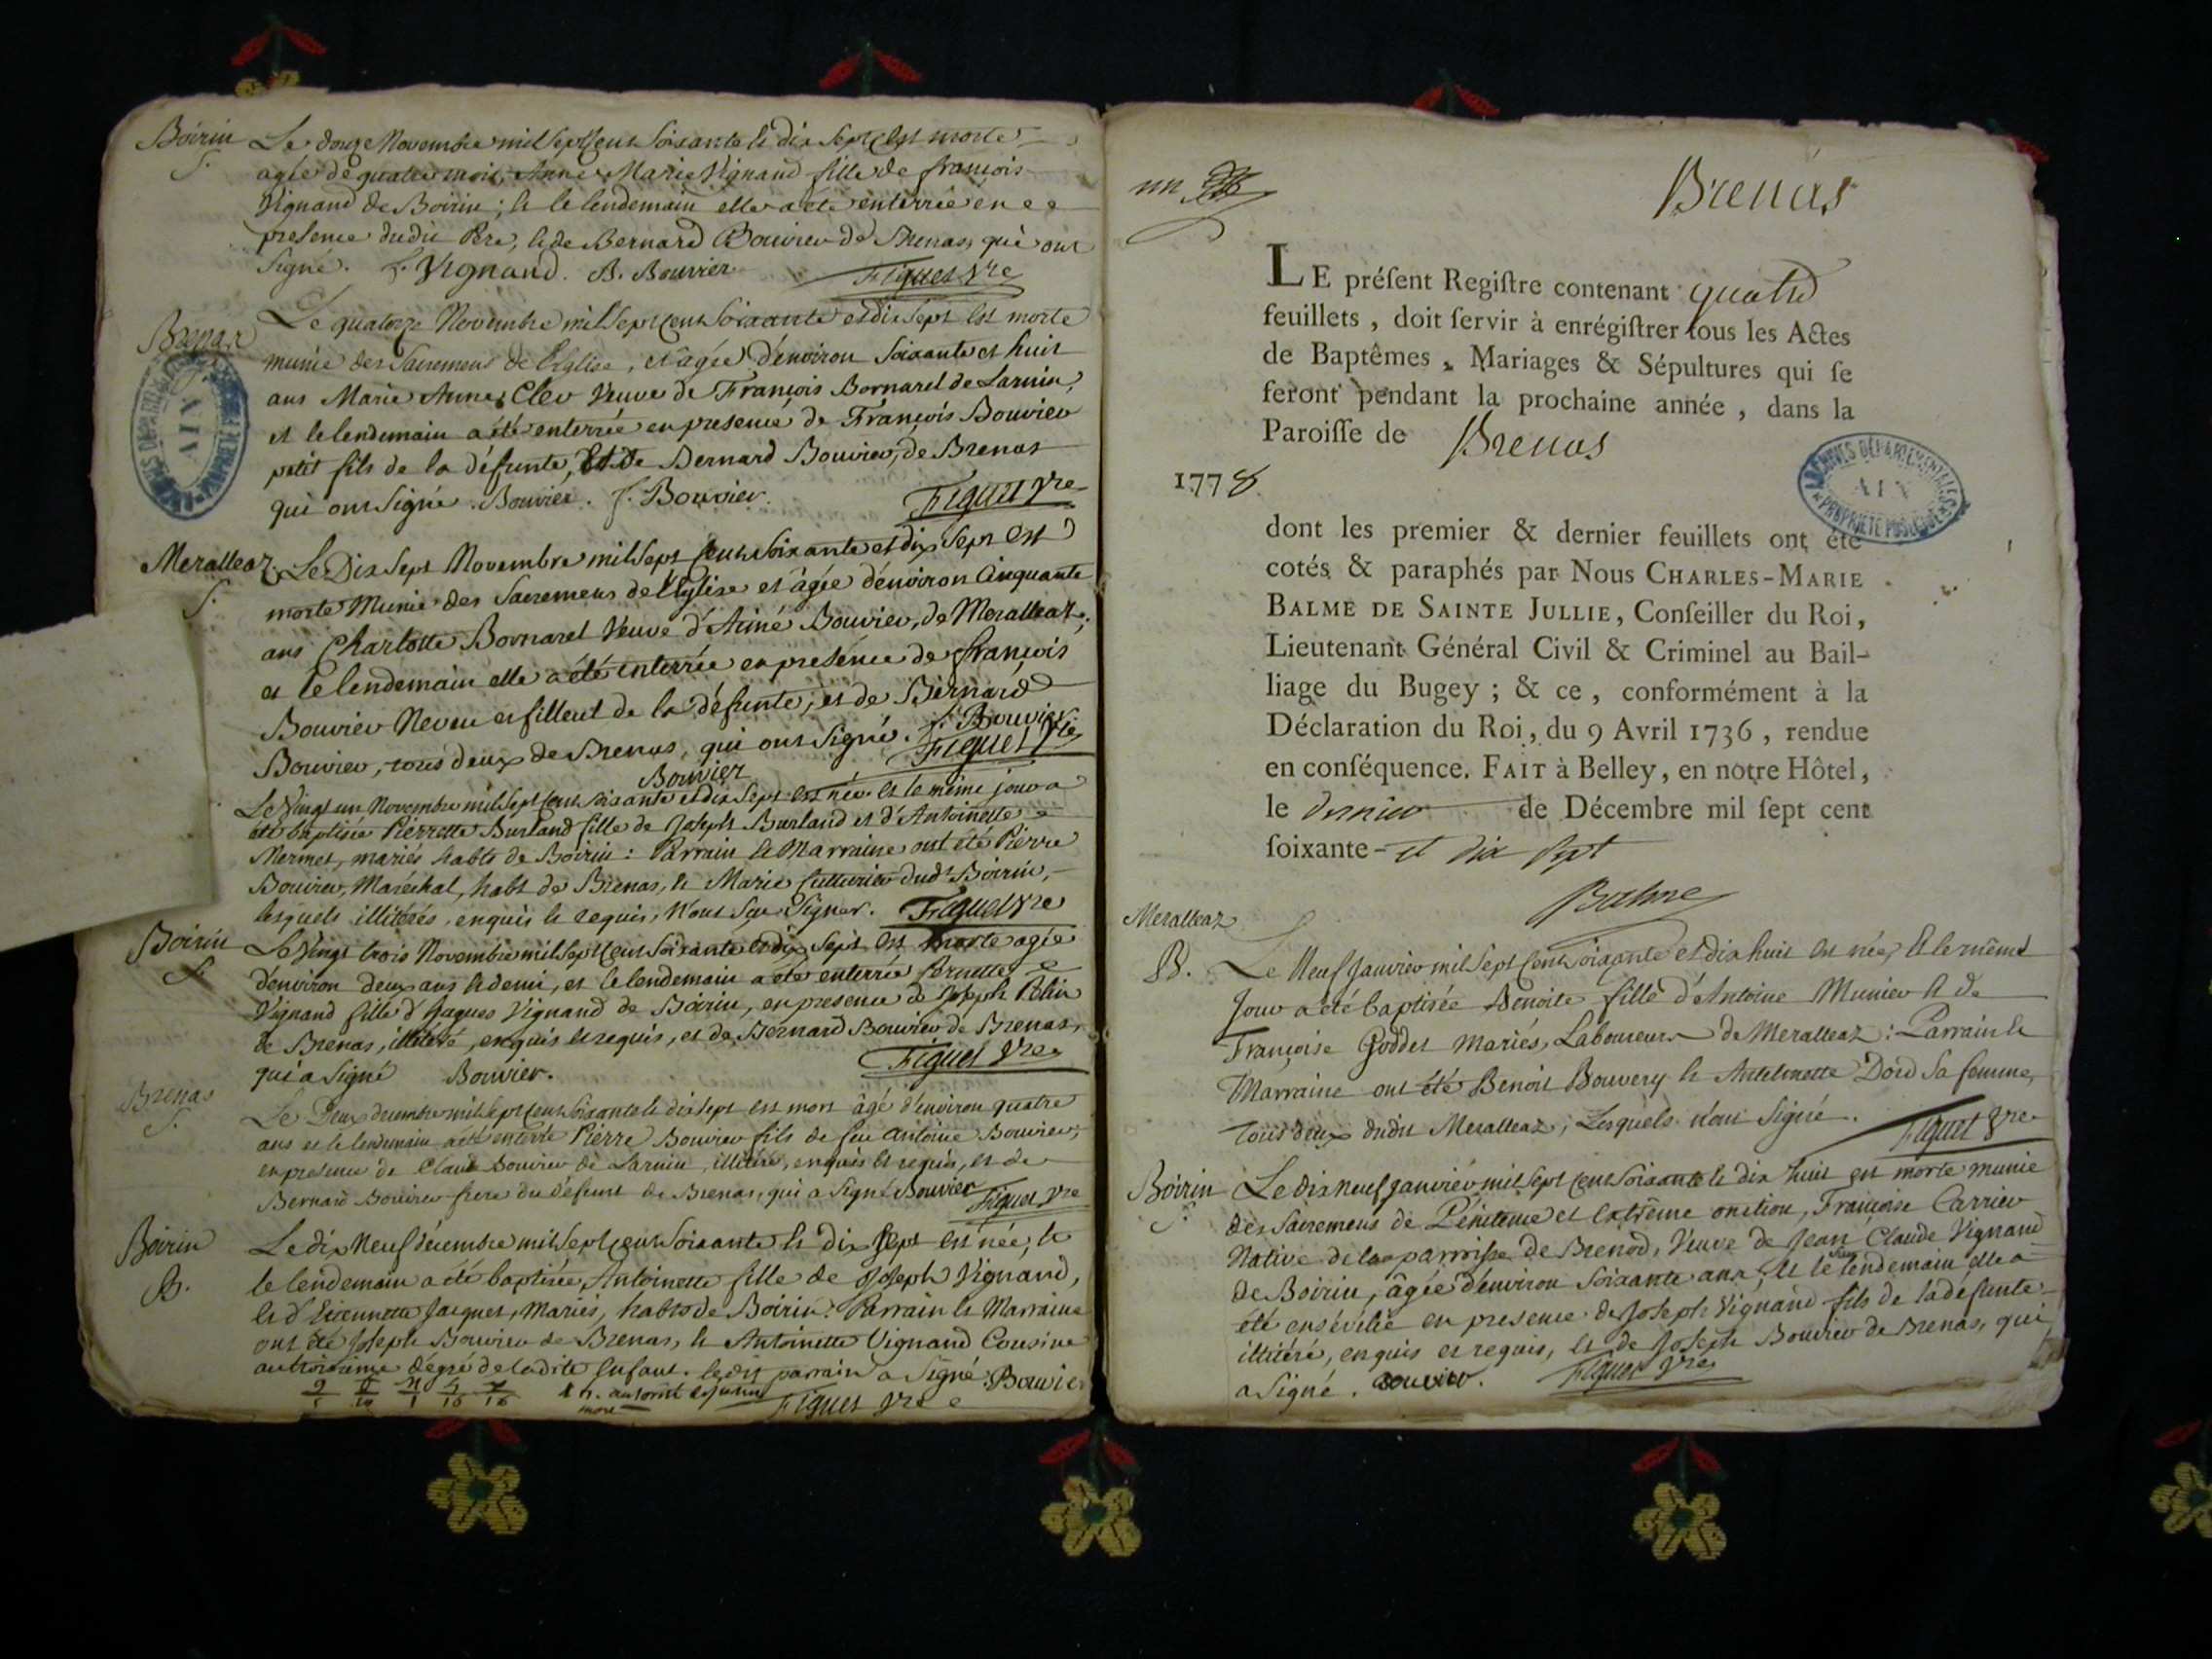 Boirin
S.
Le douze Novembre mil Sept Cent Soixante et dix Sept est morte
agée de quatre mois, Anne Marie Vignand fille de françois
Vignand de Boirin ; et le lendemain elle a été enterrée en
presence dudit Pere, et de Bernard Bouvier de Brenas, qui ont
signé. f. Vignand. B. Bouvier Figuet Vre
Brenas
Le quatorze Novembre mil Sept Cent Soixante et dix Sept est morte
munie des Sacremens de l'Eglise, et agée d'environ Soixante et huit
ans Marie Anne Cler Veuve de François Bornarel de Larnin,
et le lendemain a été enterrée en presence de François Bouvier
petit fils de la défunte, et de Bernard Bouvier, de Brenas
qui ont Signé. Bouvier. f. Bouvier. Figuet Vre
Meralleaz
S.
Le Dix Sept Novembre mil Sept Cent Soixante et dix Sept est
morte Munie des Sacremens de l'Eglise et agée d'environ Cinquante
ans Charlotte Bornarel Veuve d'Aimé Bouvier, de Meralleaz ;
et le lendemain elle a été enterrée en presence de françois
Bouvier Neveu et filleul de la défunte, et de Bernard
Bouvier, tous deux de Brenas, qui ont Signé. f. Bouvier
Bouvier Figuet Vre
Le Vingt un Novembre mil Sept Cent Soixante et dix Sept est née et le même jour a
été baptisée Pierrette Burland fille de Joseph Burland et d'Antoinette
Mermet, mariés habts de Boirin : Parrain et Marraine ont été Pierre
Bouvier, Maréchal, habt de Brenas, et Marie dudt Boirin,
lesquels illitérés, enquis et requis, n'ont Sçu Signer. Figuet Vre
Boirin
S.
Le Vingt trois Novembre mil Sept Cent Soixante et dix Sept est morte agée
d'environ deux ans et demi, et le lendemain a été enterrée
Vignand fille d'Jaques Vignand de Boirin, en presence de Joseph
de Brenas, illitéré, enquis et requis, et de Bernard Bouvier de Brenas,
qui a signé Bouvier. Figuet Vre
Brenas
S.
Le Deux decembre mil Sept Cent Soixante et dix Sept est mort âgé d'environ quatre
ans et le lendemain a été enterré Pierre Bouvier fils de feu Antoine Bouvier,
en presence de Claude Bouvier de Larnin, illitéré, enquis et requis, et de
Bernard Bouvier frere du défunt de Brenas, qui a Signé Bouvier Figuet Vre
Boirin
B.
Le dix Neuf décembre mil Sept Cent Soixante et dix Sept est née, et
le lendemain a été baptisée, Antoinette fille de Joseph Vignand,
et d'Etiennette Jacquet, Mariés, habts de Boirin : Parrain et Marraine
ont été Joseph Bouvier de Brenas, et Antoinette Vignand Cousine
au troisieme dégré de ladite Enfant. ledit parrain a Signé. Bouvier
Figuet Vre
un
Brenas
LE préſent Regiſtre contenant quatre
feuillets, doit ſervir à enrégiſtrer tous les Actes
de Baptêmes, Mariages & Sépultures qui ſe
feront pendant la prochaine année, dans la
Paroiſſe de Brenas
1778
dont les premier & dernier feuillets ont été
cotés & paraphés par Nous CHARLES-MARIE
BALME DE SAINTE JULLIE, Conſeiller du Roi,
Lieutenant Général Civil & Criminel au Bail-
liage du Bugey ; & ce, conformément à la
Déclaration du Roi, du 9 Avril 1736, rendue
en conſéquence. FAIT à Belley, en notre Hôtel,
le dernier de Décembre mil ſept cent
ſoixante-et dix sept
Balme
Meralleaz
B.
Le Neuf Janvier mil Sept Cent Soixante et dix huit est née, et le même
Jour a été baptisée Benoite fille d'Antoine Munier et de
Françoise Goddet Mariés, Laboureurs de Meralleaz : Parrain et
Marraine ont été Benoit Bouvery et Antelmette Dord Sa femme,
tous deux dudit Meralleaz, Lesquels n'ont Signé. Figuet Vre
Boirin
S.
Le dix neuf janvier mil Sept Cent Soixante et dix huit est morte munie
des Sacremens de Pénitence et extrême onction, Françoise Carrier
Native de la parroisse de Brenod, Veuve de Jean Claude Vignand
de Boirin, âgée d'environ Soixante ans, et le lendemain elle a
été ensévélie en presence de Joseph Vignand fils de la défunte
illitéré, enquis et requis, et de Joseph Bouvier de Brenas, qui
a Signé. Bouvier. Figuet Vre
ARCHIVES DÉPARTEMENTALES
AIN
PROPRIÉTÉ PUBLIQUE